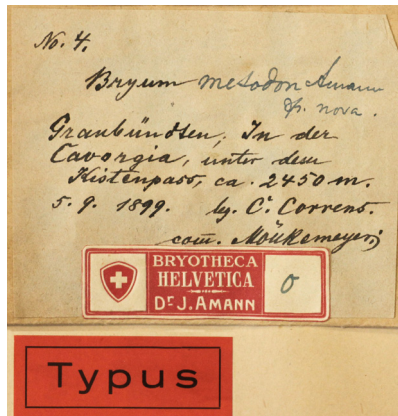 No. 4.
Bryum mesodon Amann
sp. nova.
Graubündten, In der
Cavorgia, unter dem
Kistenpass, ca. 2450 m.
5. 9. 1899. leg. C. Correns.
com. Mönkemeyer
BRYOTHECA
HELVETICA
Dr J. AMANN
0
Typus